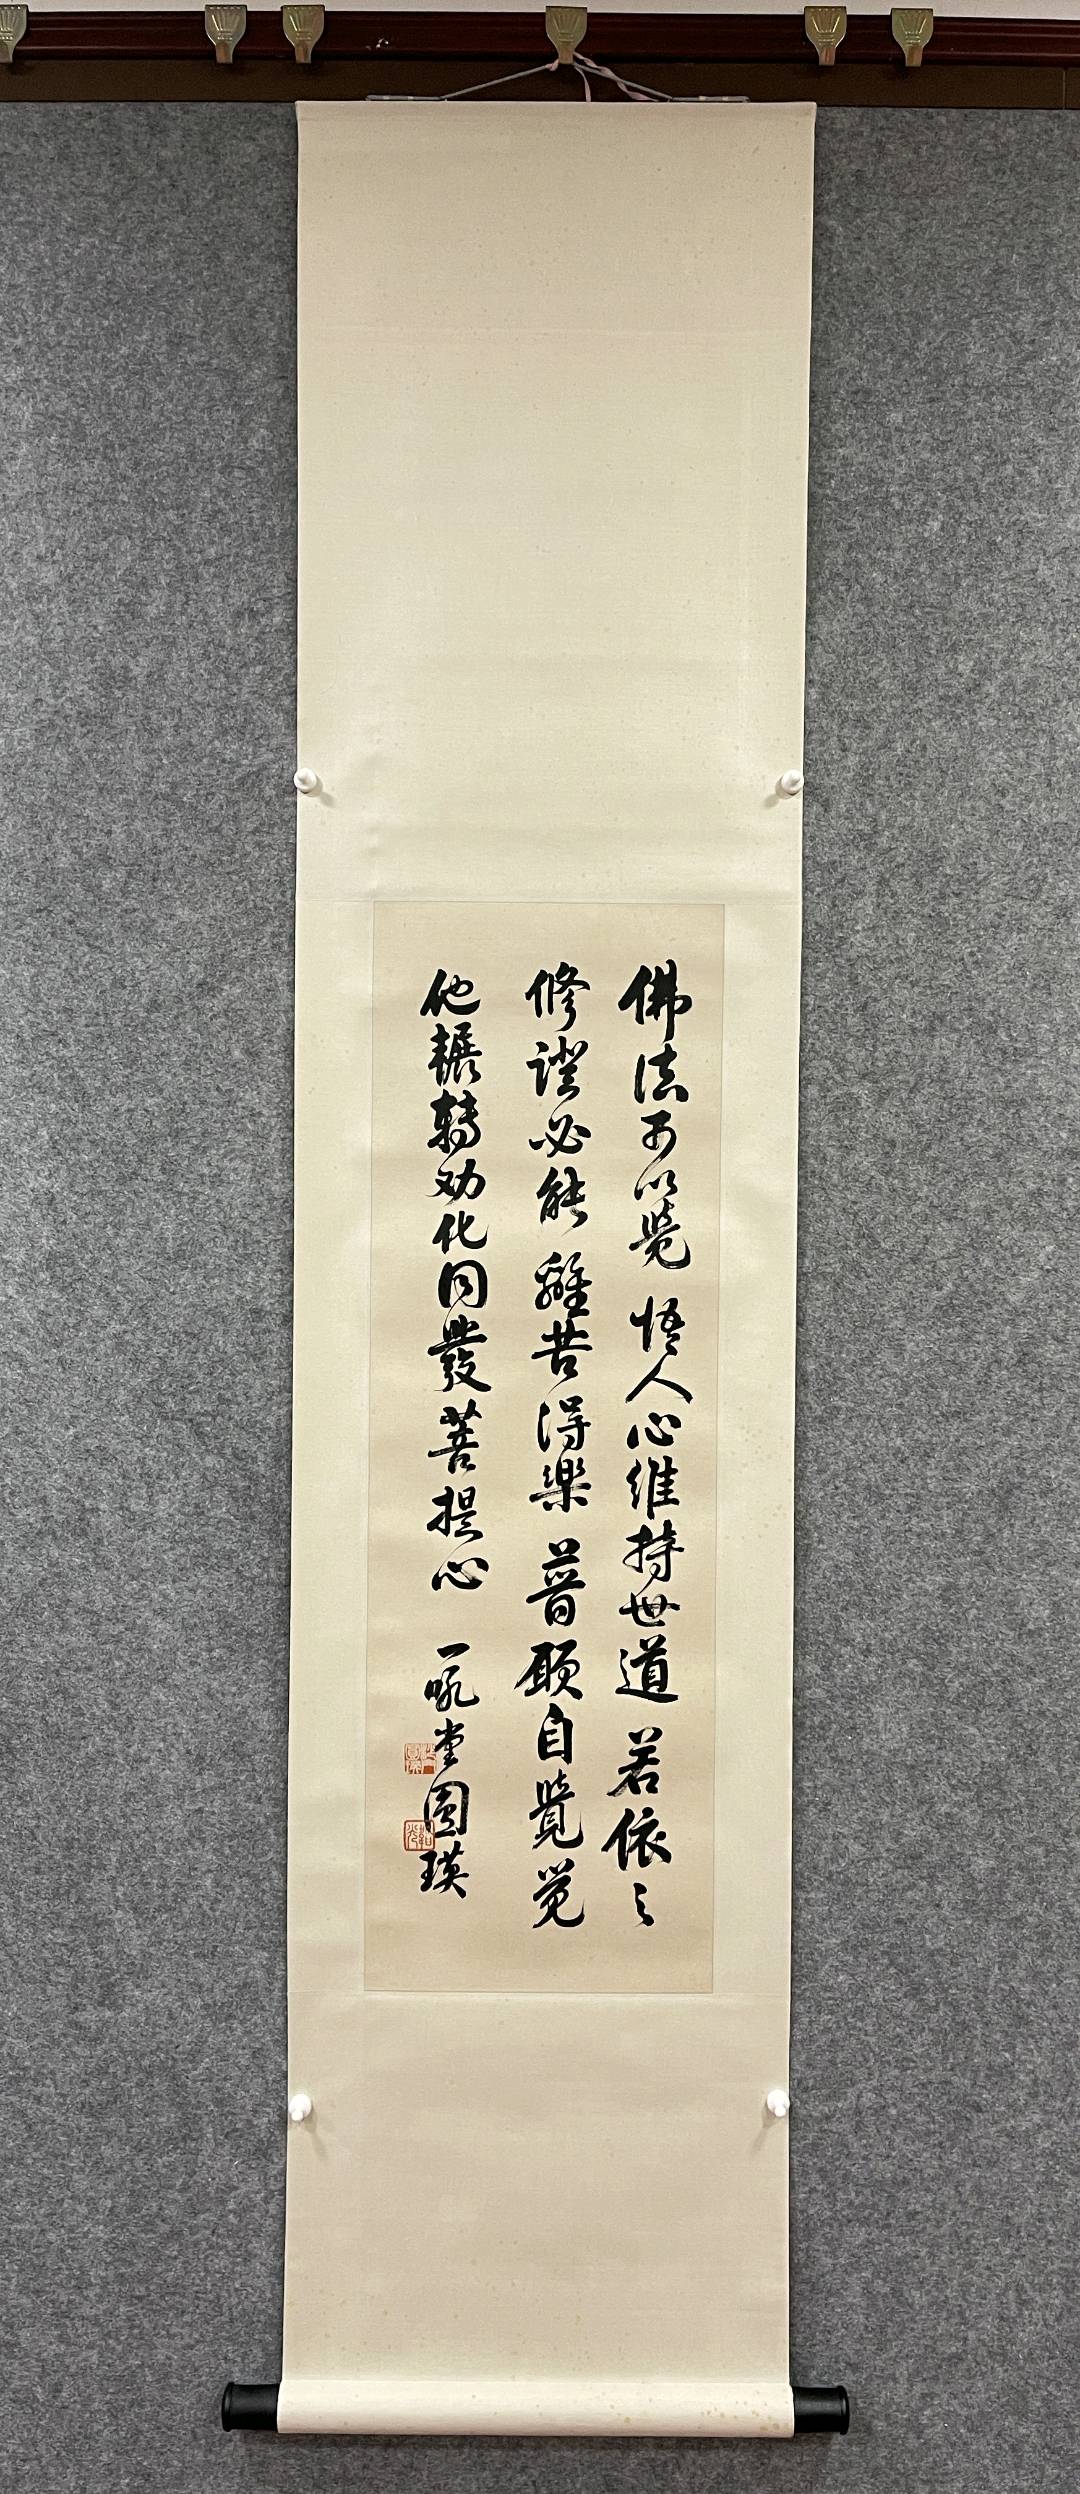 佛法可以覺悟人心維持世道若依之
修證必能離苦得樂普願自覺覚
他輾轉劝化同發菩提心 一吼堂圓瑛